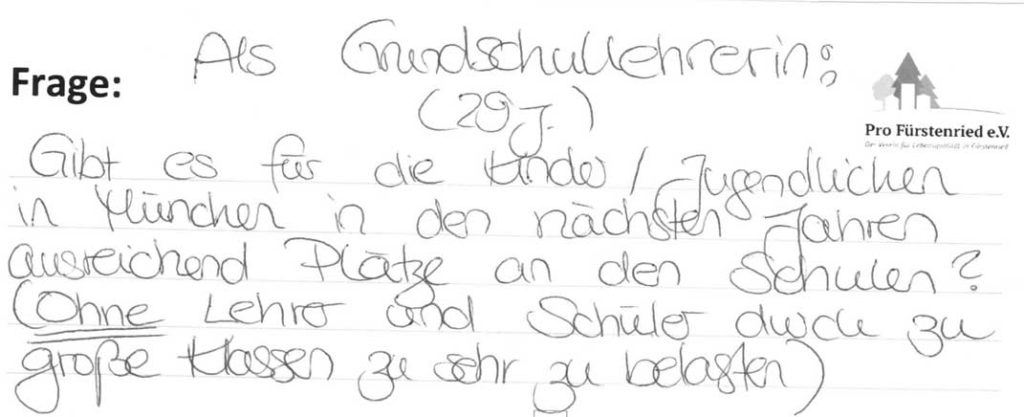 Als Grundschullehrerin:
Frage:
(29 J.)
Pro Fürstenried e.V.
Der Verein für Lebensqualität in Fürstenried
Gibt es für die Kinder / Jugendlichen
in München in den nächsten Jahren
ausreichend Plätze an den Schulen?
(Ohne Lehrer und Schüler durch zu
große Klassen zu sehr zu belasten)